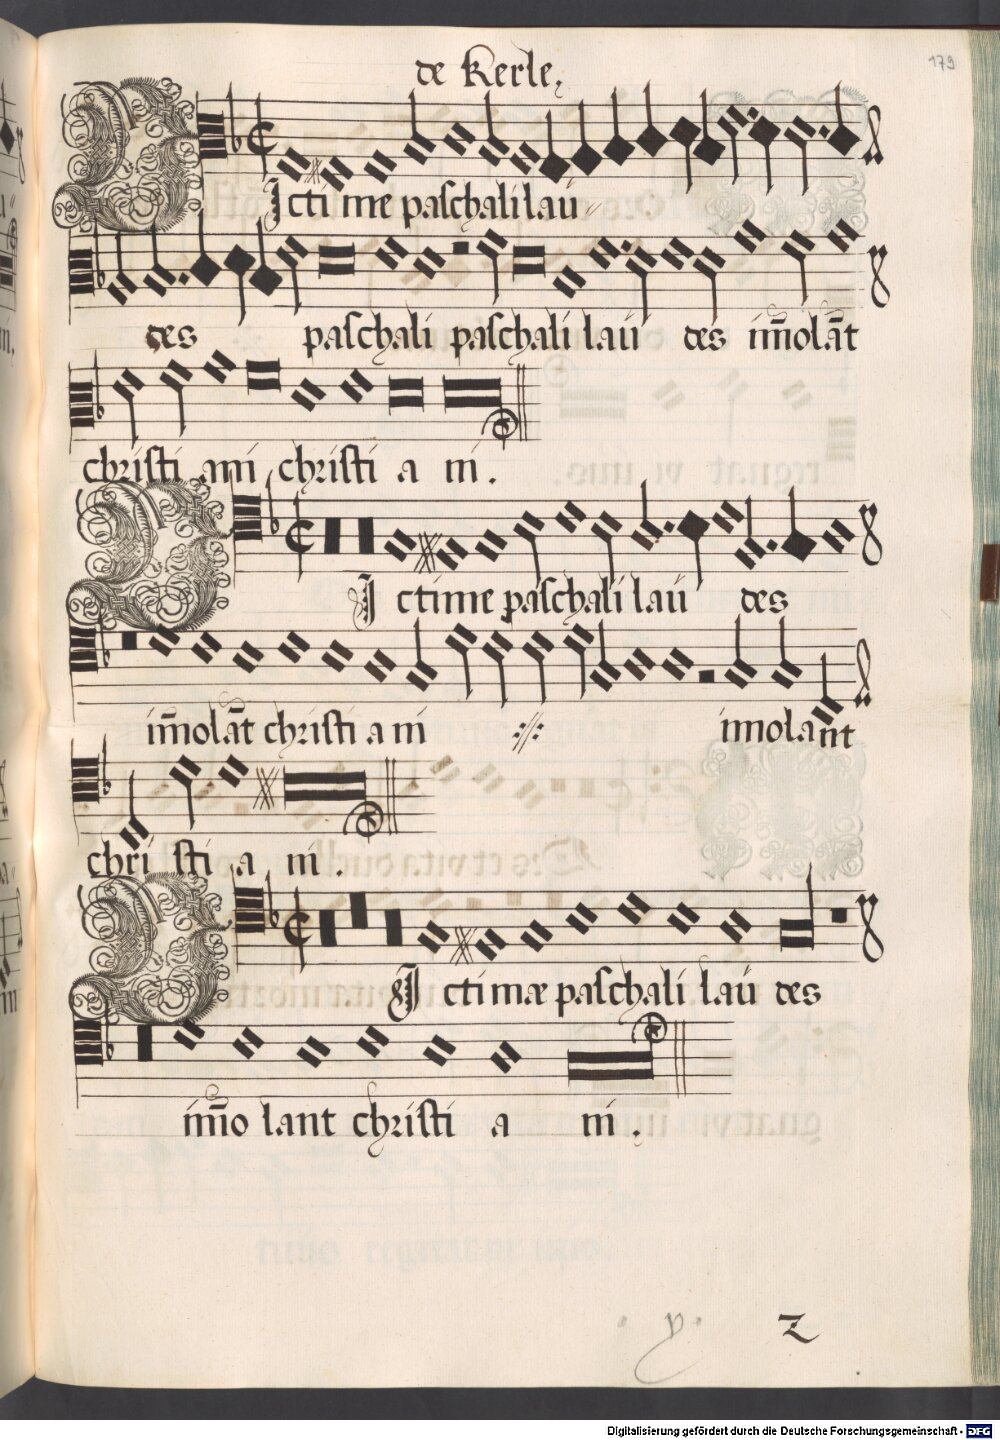 de Kerle,
179
Victime paschali lau
des paschali paschali lau des im̄olāt
christi ani christi a ni.
Victime paschali lau des
im̄olāt christi a ni :/: imolant
christi a ni.
Victimæ paschali lau des
im̄o lant christi a ni.
y. z
Digitalisierung gefördert durch die Deutsche Forschungsgemeinschaft - DFG